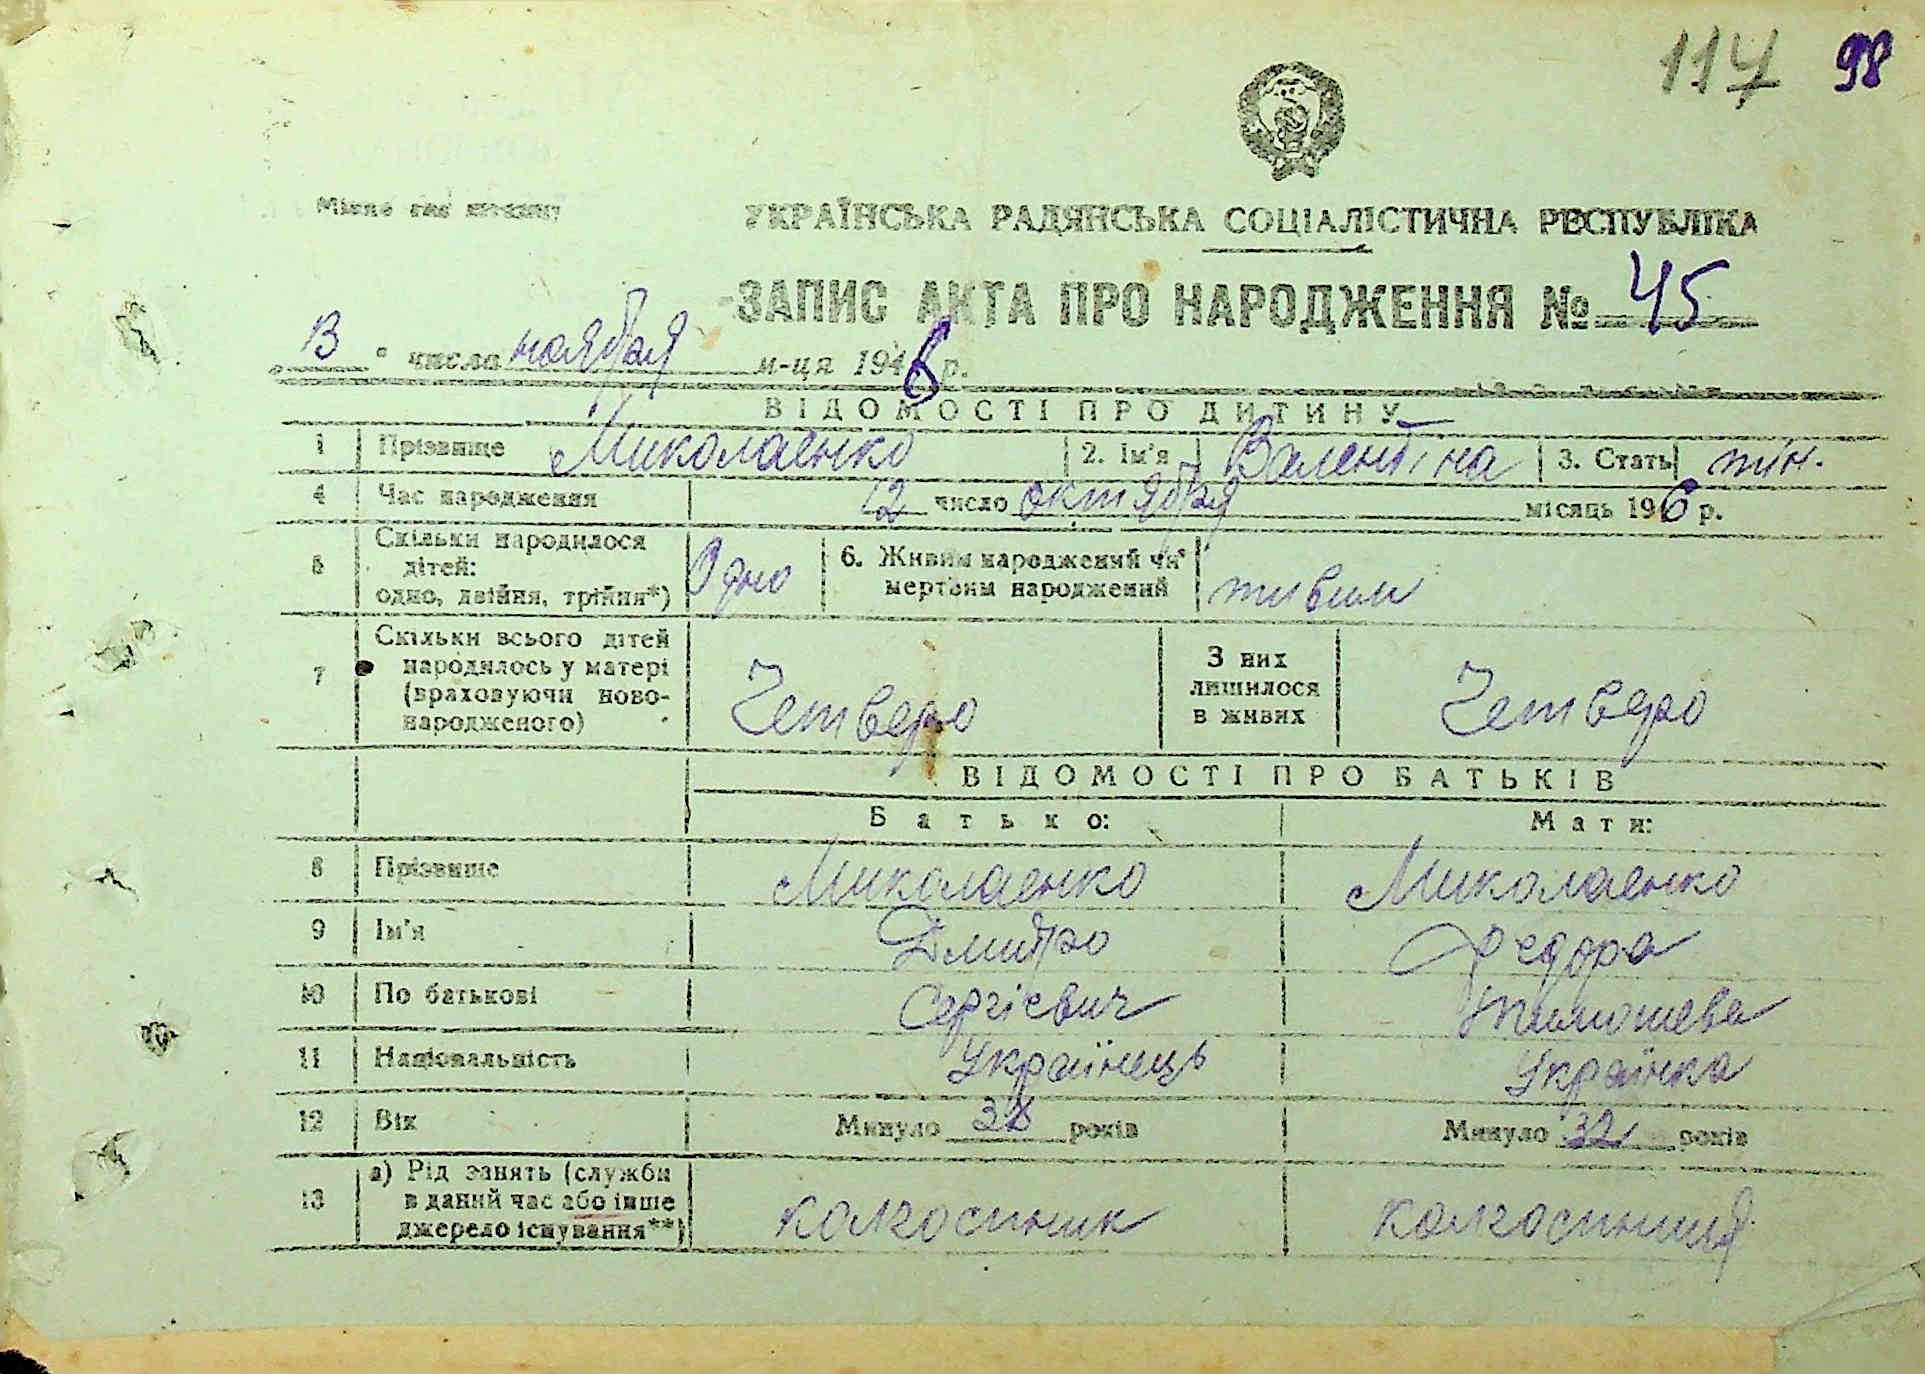 117 98
Місце для штампу
УКРАЇНСЬКА РАДЯНСЬКА СОЦІАЛІСТИЧНА РЕСПУБЛІКА
ЗАПИС АКТА ПРО НАРОДЖЕННЯ № 45
„13“ числа ноября м-ця 1946 р.
ВІДОМОСТІ ПРО ДИТИНУ
1 Прізвище Миколаенко 2. Ім'я Валентіна 3. Стать жін.
4 Час народження 12 число октября місяць 1946 р.
5 Скільки народилося дітей: одно, двійня, трійня*) Одно 6. Живим народжений чи мертвим народжений живим
7 Скільки всього дітей народилось у матері (враховуючи новонародженого) Четверо З них лишилося в живих Четверо
ВІДОМОСТІ ПРО БАТЬКІВ
Батько: Мати:
8 Прізвище Миколаенко Миколаенко
9 Ім'я Дмитро Федора
10 По батькові Сергієвич Тимошева
11 Національність Українець Українка
12 Вік Минуло 38 років Минуло 32 років
13 а) Рід занять (служби в даний час або інше джерело існування**) колгоспник колгоспниця